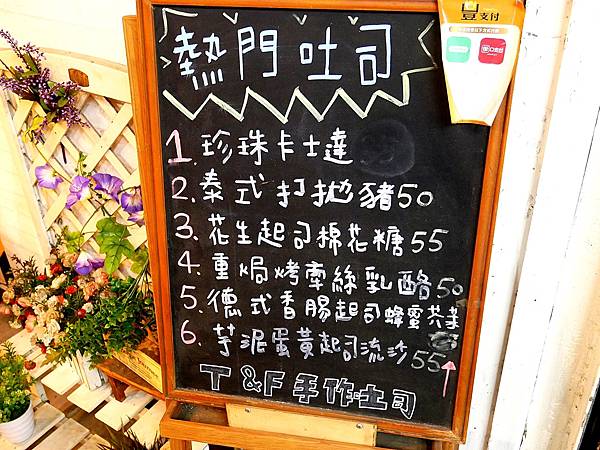 支付
熱門吐司
1.珍珠卡士達
2.泰式打拋豬50
3.花生起司棉花糖55
4.重焗烤牽絲乳酪50
5.德式香腸起司蜂蜜芥茉
6.芋泥蛋黃起司流沙55
T&F手作吐司